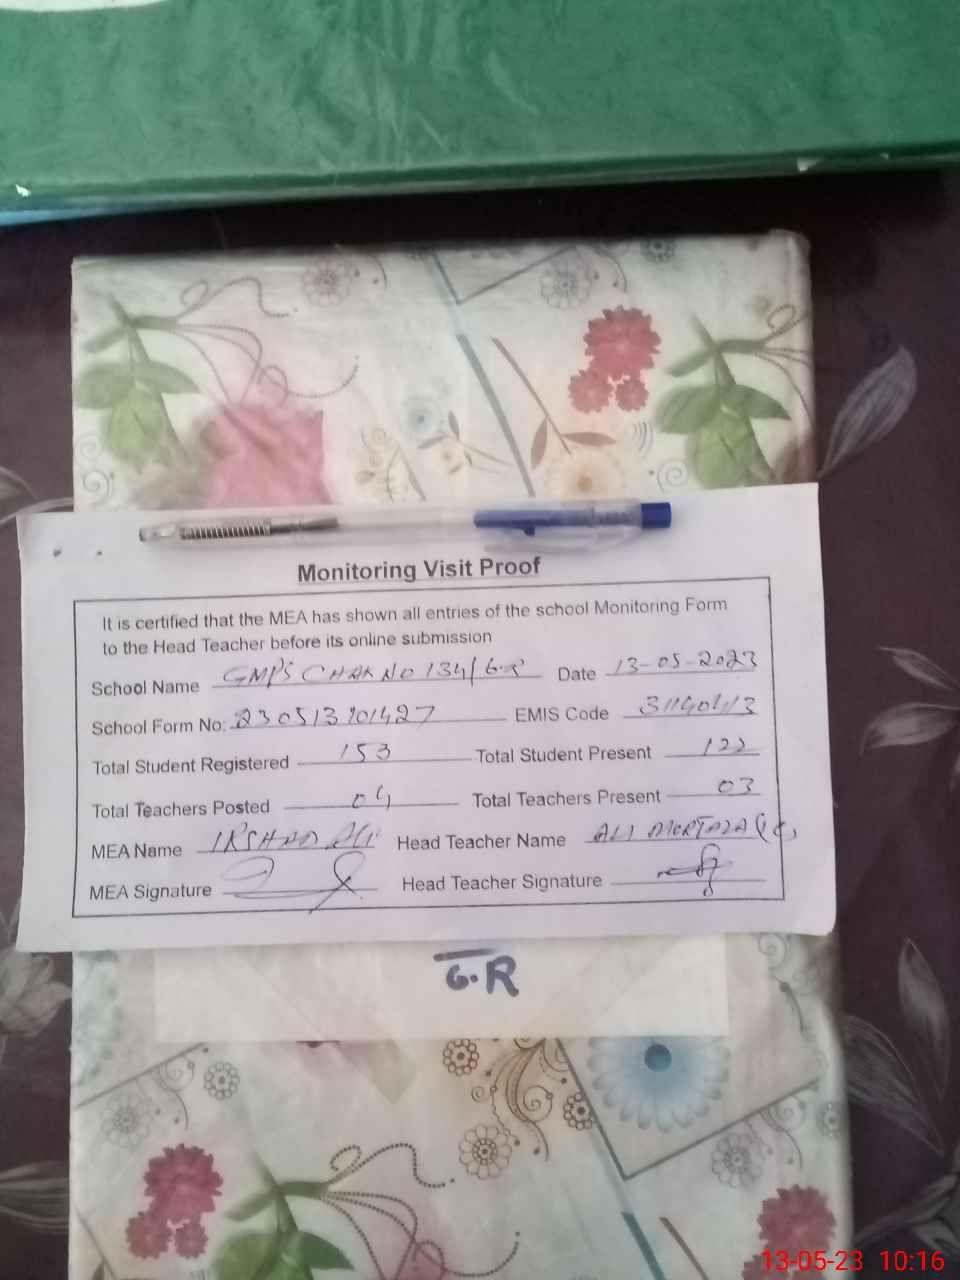 Monitoring Visit Proof
It is certified that the MEA has shown all entries of the school Monitoring Form
to the Head Teacher before its online submission
School Name GMPS CHAK NO 134/6-R Date 13-05-2023
School Form No: 230513101427 EMIS Code
Total Student Registered 153 Total Student Present 122
Total Teachers Posted 04 Total Teachers Present 03
MEA Name IRSHAD ALI Head Teacher Name ALI MURTAZA
MEA Signature Head Teacher Signature
G.R
13-05-23 10:16